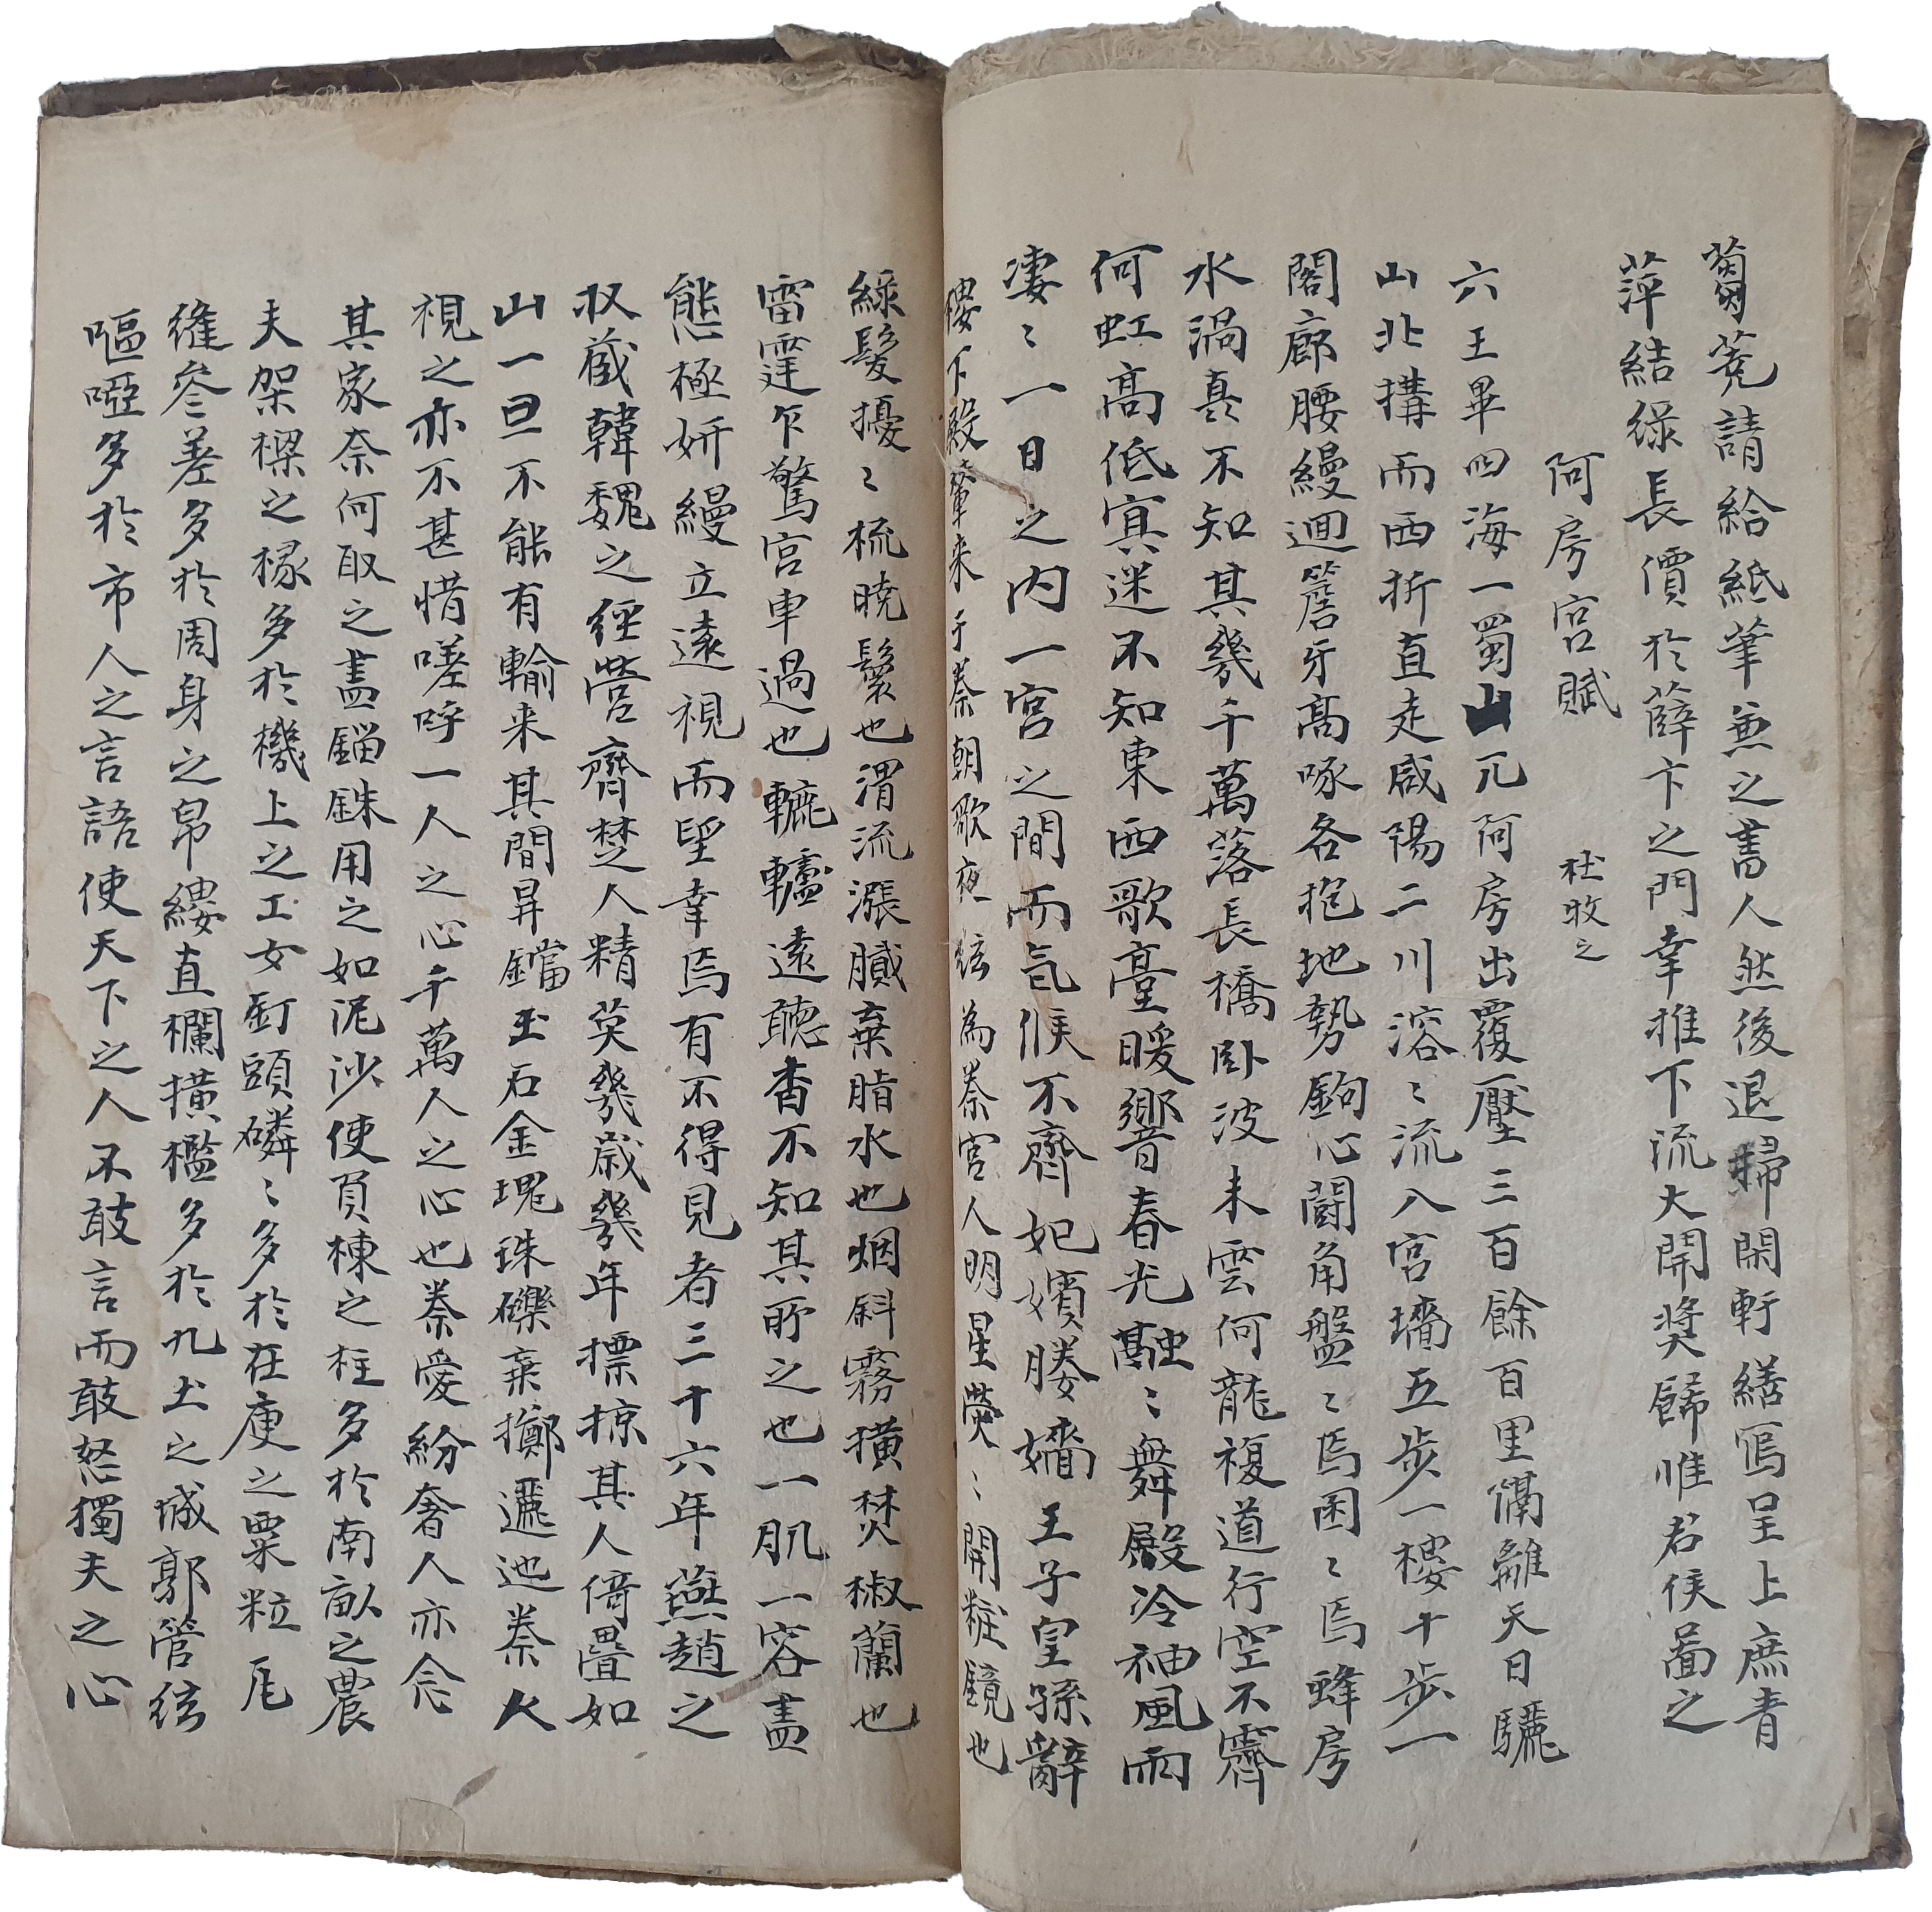 蒭蕘請給紙筆兼之書人然後退歸閑軒繕寫呈上庶青
萍結綠長價於薛卞之門幸推下流大開奬歸惟君侯啚之
阿房宮賦 杜牧之
六王畢四海一蜀山兀阿房出覆壓三百餘百里隔離天日驪
山北搆而西折直走咸陽二川溶〻流入宮墻五步一樓十步一
閣廊腰縵迴簷牙髙啄各抱地勢鉤心鬪角盤〻焉囷〻焉蜂房
水渦矗不知其幾千萬落長橋卧波未雲何龍複道行空不霽
何虹髙低寘迷不知東西歌臺暖響春光融〻舞殿冷袖風雨
凄〻一日之内一宮之間而氣候不齊妃嬪媵嬙王子皇孫辭
樓下殿輦来于秦朝歌夜絃為秦宮人明星熒〻開粧鏡也
綠髮擾〻梳曉鬟也渭流漲膩棄脂水也烟斜霧橫焚椒蘭也
雷霆乍驚宮車過也轆轤遠聽杳不知其所之也一肌一容盡
態極妍縵立遠視而望幸焉有不得見者三十六年燕趙之
収蔵韓魏之經營齊楚人精英幾歲幾年摽掠其人倚疊如
山一旦不能有輸来其間鼎鐺玉石金塊珠礫棄擲邐迆秦人
視之亦不甚惜嗟呼一人之心千萬人之心也秦愛紛奢人亦念
其家奈何取之盡錙銖用之如泥沙使負棟之柱多於南畝之農
夫架樑之椽多於機上之工女釘頭磷〻多於在庾之粟粒瓦
縫參差多於周身之帛縷直欄横檻多於九土之城郭管絃
嘔啞多於市人之言語使天下之人不敢言而敢怒獨夫之心